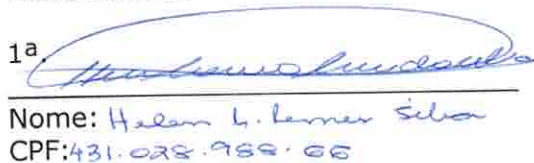 1ª.
Nome: Helen L. Lemes Silva
CPF:431.028.988.66